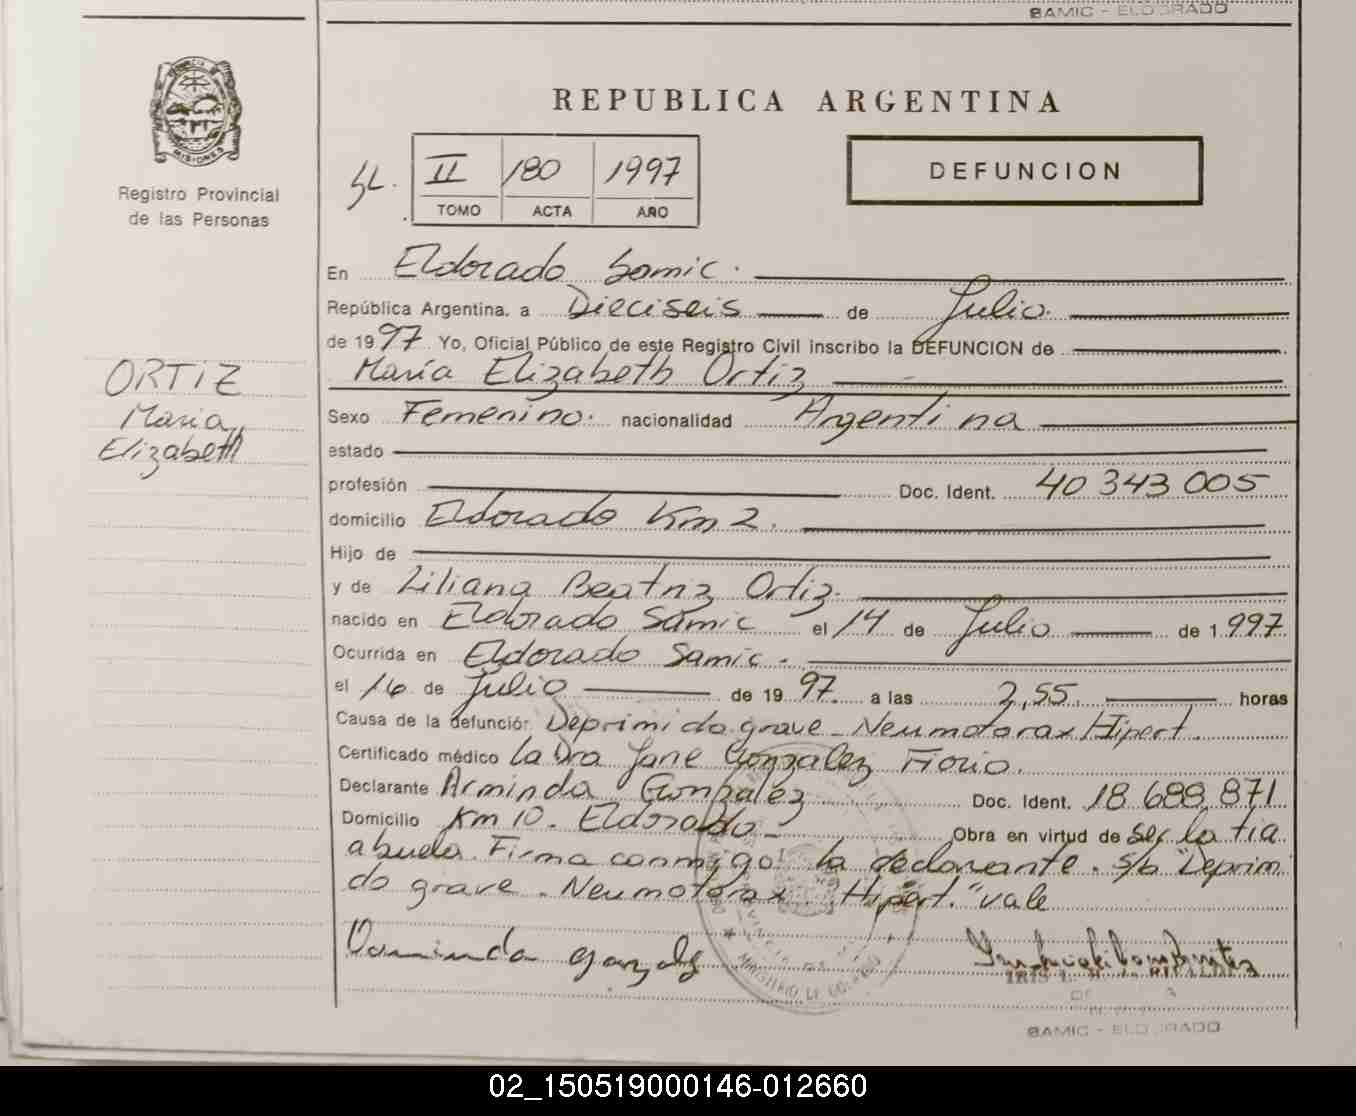 SAMIC - ELDORADO
PROVINCIA DE
MISIONES
Registro Provincial
de las Personas
REPUBLICA ARGENTINA
II 180 1997
TOMO ACTA AÑO
DEFUNCION
En Eldorado Samic.
República Argentina, a Dieciseis de Julio.
de 1997 Yo, Oficial Público de este Registro Civil inscribo la DEFUNCION de
María Elizabeth Ortiz
ORTIZ
Maria
Elizabeth
Sexo Femenino. nacionalidad Argentina
estado
profesión Doc. Ident. 40 343 005
domicilio Eldorado Km 2.
Hijo de
y de Liliana Beatriz Ortiz.
nacido en Eldorado Samic el 14 de Julio de 1.997
Ocurrida en Eldorado Samic.
el 16 de Julio de 1997. a las 2,55. horas
Causa de la defunción: Deprimido grave - Neumotorax Hipert.
Certificado médico la Dra Jane Gonzalez Fiorio.
Declarante Arminda Gonzalez Doc. Ident. 18 688 871
Domicilio Km 10. Eldorado - Obra en virtud de Ser la tia
abuela. Firma conmigo la declarante. s/b "Deprimi
do grave. Neumotorax Hipert." vale
gonzalez
MINISTERIO DE GOBIERNO
SAMIC - ELDORADO
02_150519000146-012660